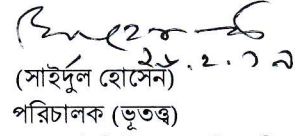 ২৮.২.১৯
(সাইর্দুল হোসেন)
পরিচালক (ভূতত্ত্ব)